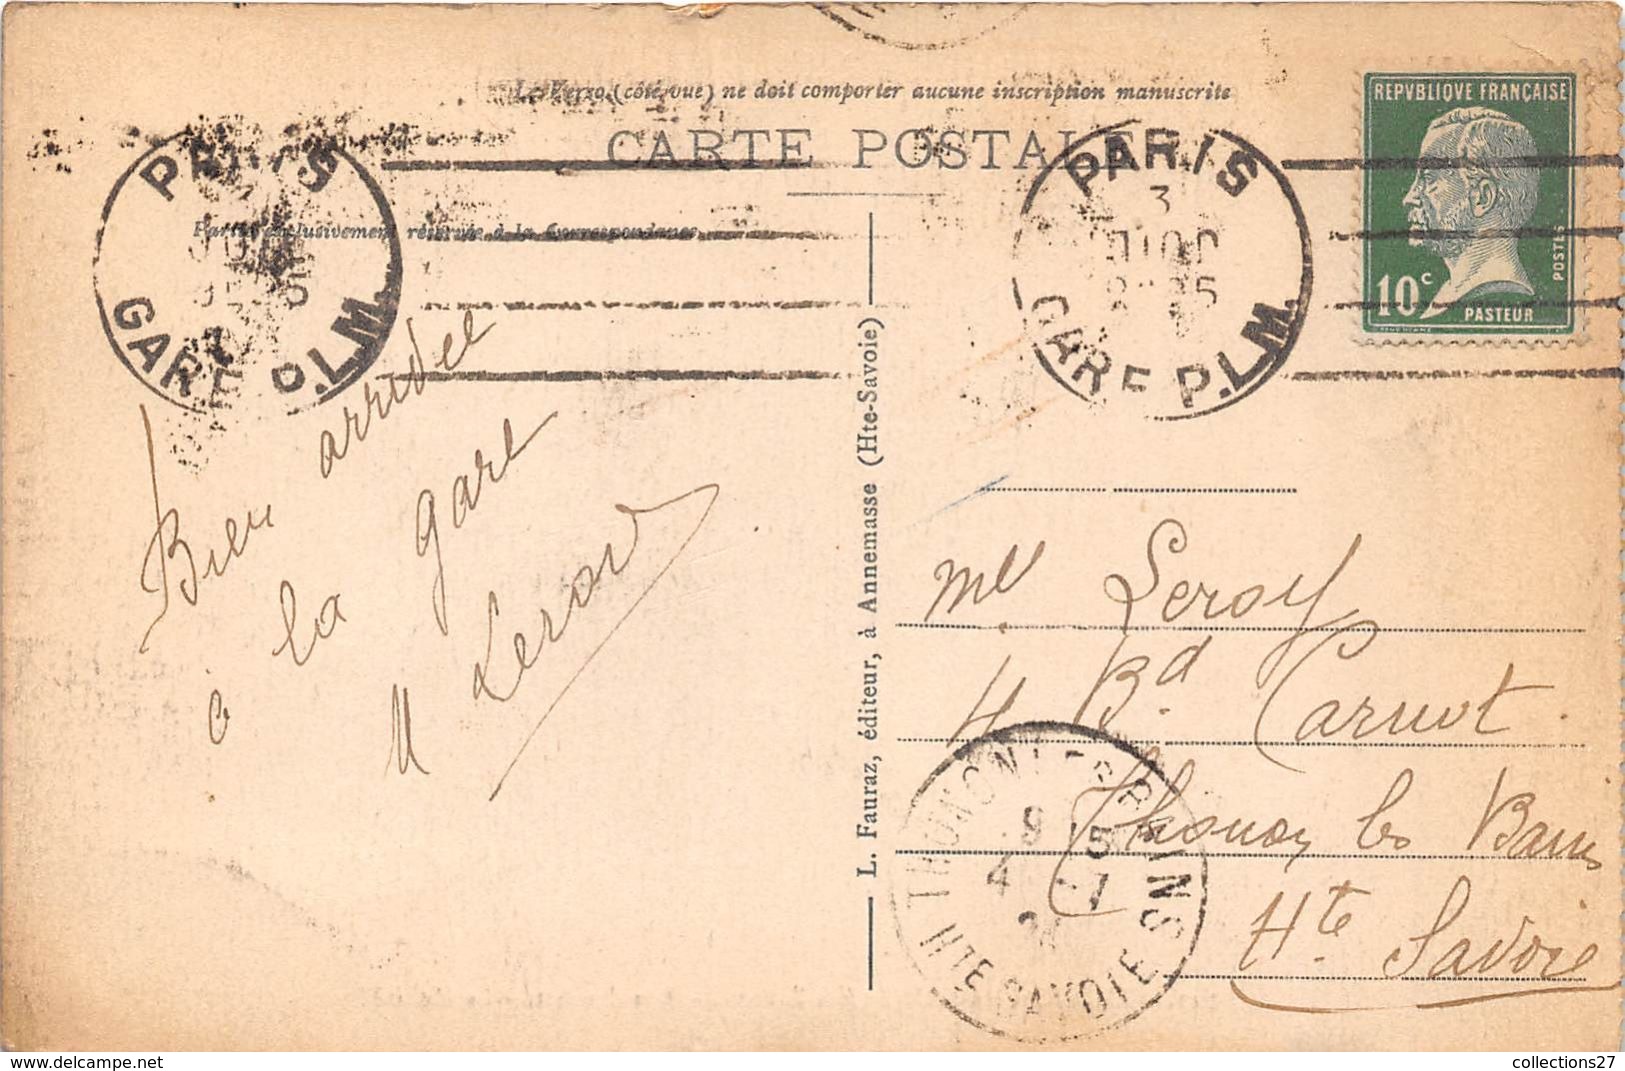 Le Verso (côté vue) ne doit comporter aucune inscription manuscrite
CARTE POSTALE
Partie exclusivement réservée à la Correspondance
PARIS
GARE P.L.M.
PARIS
3
25
GARE P.L.M.
REPVBLIQVE FRANÇAISE
POSTES
10c
PASTEUR
Bien arrivée
à la gare
M Leroy
L. Fauraz, éditeur, à Annemasse (Hte-Savoie)
Mle Leroy
4 Bd. Carnot.
Thonon les Bains
Hte. Savoie
THONON LES BAINS
9 15
4 -7
HTE SAVOIE
collections27